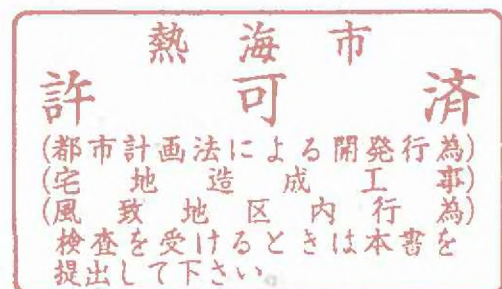 熱海市
許可済
(都市計画法による開発行為)
(宅地造成工事)
(風致地区内行為)
検査を受けるときは本書を
提出して下さい